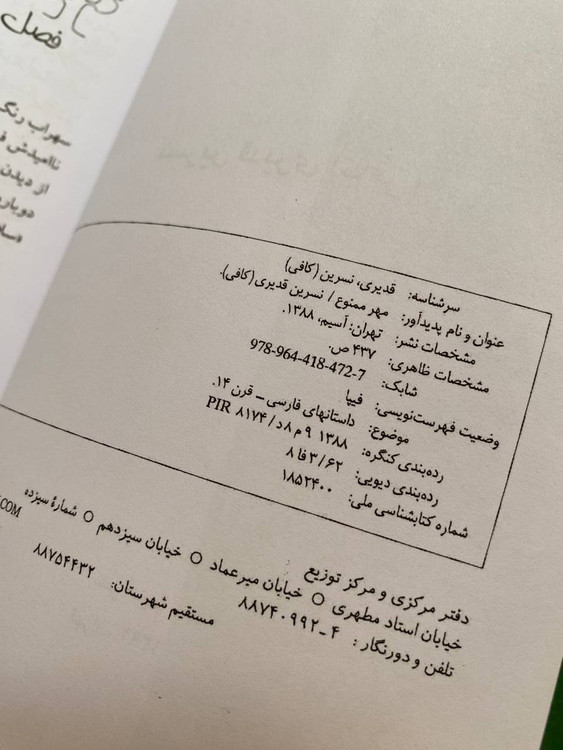 فصل
سهراب رنگ
ناامیدش
از دیدن
دوباره
سرشناسه: قدیری، نسرین (کافی)
عنوان و نام پدیدآور: مهر ممنوع / نسرین قدیری (کافی).
مشخصات نشر: تهران: آسیم، ۱۳۸۸.
مشخصات ظاهری: ۴۳۷ ص.
شابک: 978-964-418-472-7
وضعیت فهرست‌نویسی: فیپا
موضوع: داستانهای فارسی – قرن ۱۴.
رده‌بندی کنگره: ۱۳۸۸ ۹ م ۸ د / ۸۱۷۴ PIR
رده‌بندی دیویی: ۳/۶۲ فا ۸
شماره کتابشناسی ملی: ۱۸۵۲۴۰۰
دفتر مرکزی و مرکز توزیع
خیابان استاد مطهری ○ خیابان میرعماد ○ خیابان سیزدهم ○ شمارهٔ سیزده
تلفن و دورنگار: ۴-۸۸۷۴۰۹۹۲ مستقیم شهرستان: ۸۸۷۵۴۴۳۲
.COM